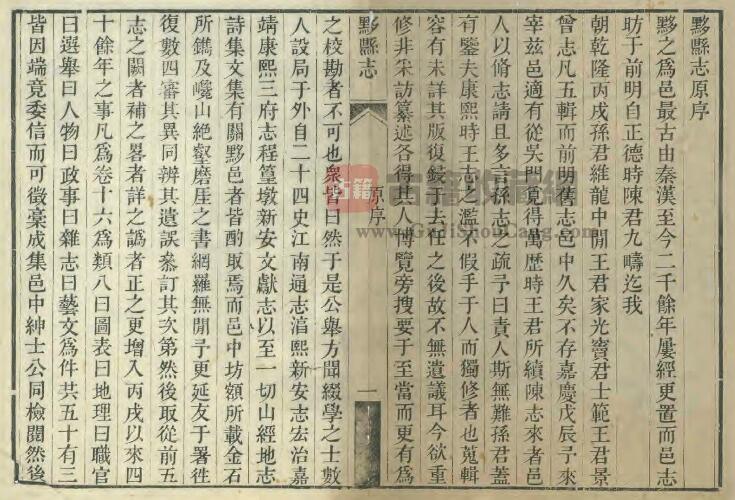 黟縣志原序
黟之為邑最古由秦漢至今二千餘年屢經更置而邑志
昉于前明自正德時陳君九疇迄我
朝乾隆丙戌孫君維龍中閒王君家光竇君士範王君景
曾志凡五輯而前明舊志邑中久矣不存嘉慶戊辰予來
宰茲邑適有從吳門覓得萬歷時王君所續陳志來者邑
人以脩志請且多言孫志之疏予曰責人斯無難孫君蓋
有鑒夫康熙時王志之濫不假手于人而獨修者也蒐輯
容有未詳其版復鋟于去任之後故不無遺議耳今欲重
修非采訪纂述各得其人博覽旁搜要于至當而更有為
黟縣志
原序
一
之校勘者不可也眾皆曰然于是公舉方聞綴學之士數
人設局于外自二十四史江南通志淳熙新安志宏治嘉
靖康熙三府志程篁墩新安文獻志以至一切山經地志
詩集文集有關黟邑者皆酌取焉而邑中坊額所載金石
所鐫及巉山絕壑磨厓之書網羅無閒予更延友于署徃
復數四審其異同辨其遺誤叅訂其次第然後取從前五
志之闕者補之畧者詳之譌者正之更增入丙戌以來四
十餘年之事凡為卷十六為類八曰圖表曰地理曰職官
曰選舉曰人物曰政事曰雜志曰藝文為件共五十有三
皆因端竟委信而可徵稾成集邑中紳士公同檢閱然後
古籍
古籍收藏網
www.GuJiShouCang.com